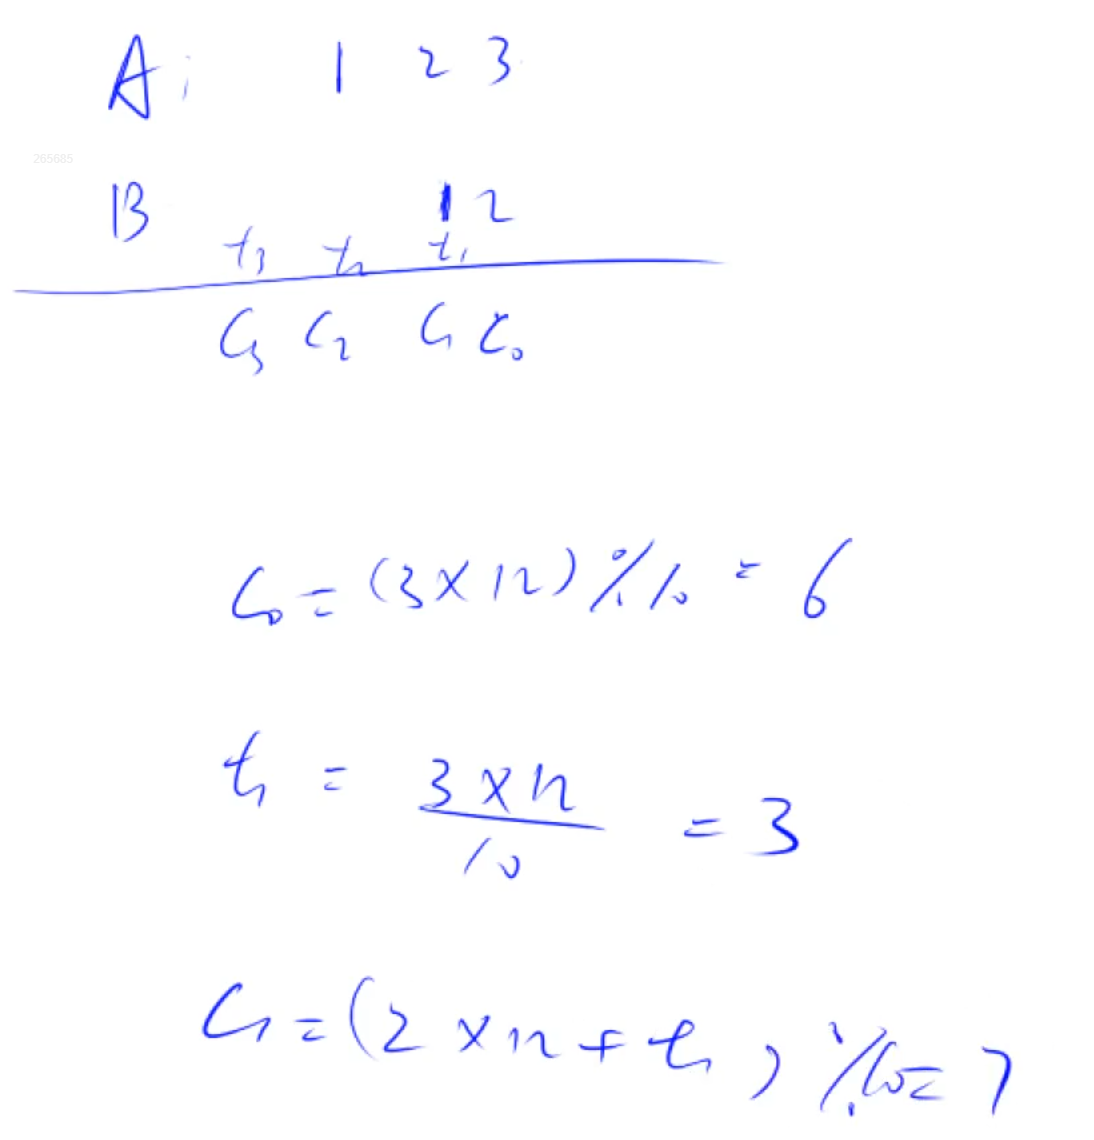 A: 1 2 3
265685
B 1 2
t₃ t₂ t₁
C₃ C₂ C₁ C₀
C₀ = (3 × 12) % 10 = 6
t₁ = 3 × 12 / 10 = 3
C₁ = (2 × 12 + t₁) % 10 = 7